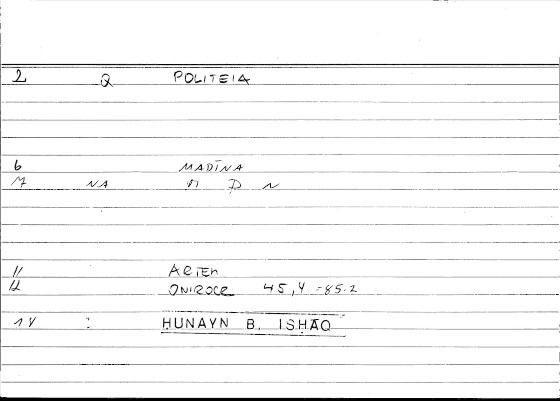 2 Q POLITEIA
6 MADĪNA
7 NA M D N
11 ARTEM
12 ONIROCR 45,4 = 85.2
14 : ḤUNAYN B. ISḤĀQ